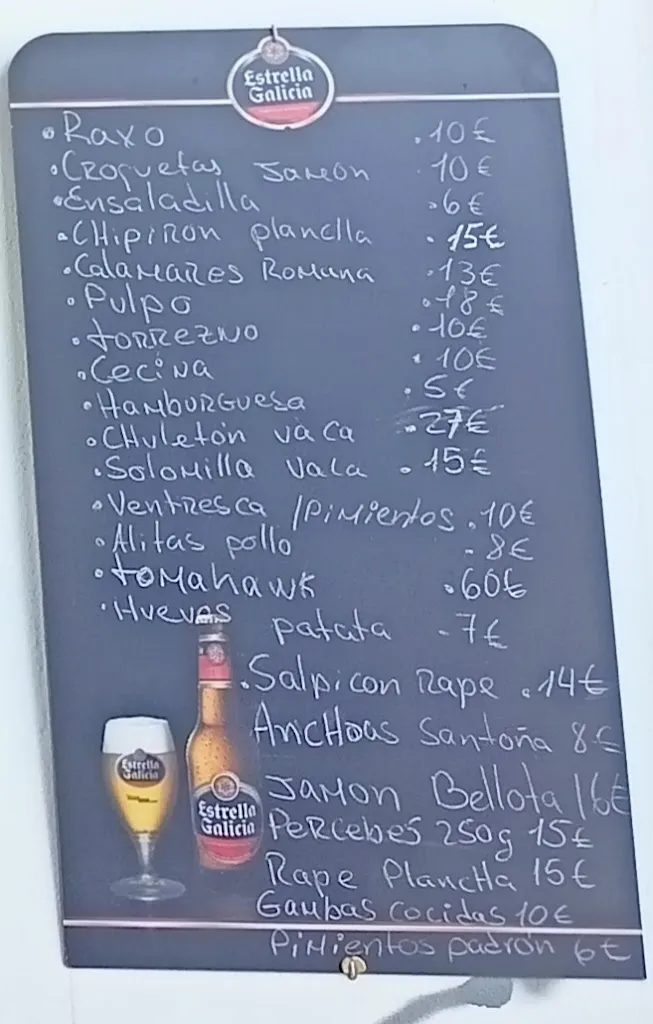 Estrella
Galicia
• Raxo .10€
• CROquetas JAMÓN .10€
• Ensaladilla •6€
• CHIPIRON plancha • 15€
• CalaMARES ROMANA •13€
• Pulpo •18€
• TORREZNO • 10€
• Cecina • 10€
• HAMBURGUESA • 5€
• CHuletón vaca 27€
• Solomilla vaca • 15€
• Ventresca /Pimientos .10€
• Alitas pollo - 8€
• TOMAhawk .60€
• Huevos patata - 7€
• Salpicon Rape . 14€
ANCHoas Santoña 8€
JAMON Bellota 16€
PERCEBES 250g 15€
Rape PlancHa 15€
GAMBAS COCIDAS 10€
Pimientos padrón 6€
Estrella
Galicia
Estrella
Galicia